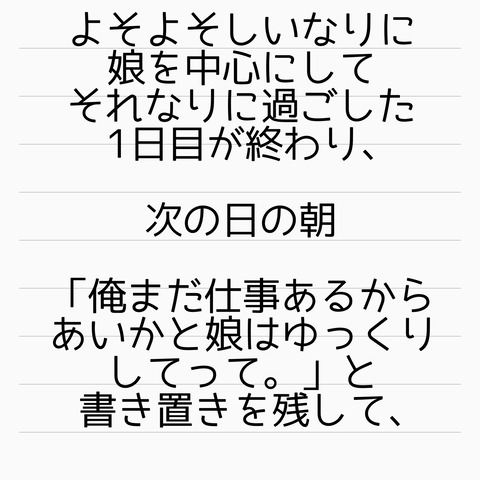 よそよそしいなりに
娘を中心にして
それなりに過ごした
1日目が終わり、
次の日の朝
「俺まだ仕事あるから
あいかと娘はゆっくり
してって。」と
書き置きを残して、